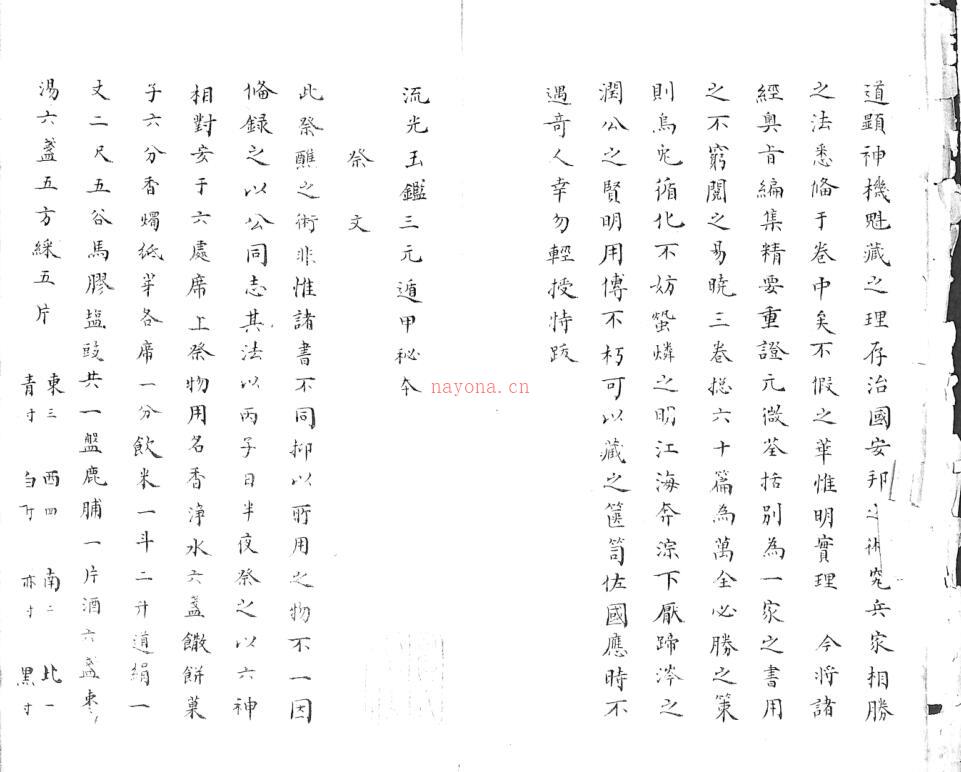 道顯神機魁藏之理存治國安邦之術究兵家相勝
之法悉備于卷中矣不假之華惟明實理 今將諸
經奥旨編集精要重證元微荃括別為一家之書用
之不窮閱之易曉三卷捴六十篇為萬全必勝之策
則烏兔循化不妨螢燐之明江海奔淙下厭蹄涔之
潤公之賢明用傳不朽可以藏之篋笥佐國應時不
遇奇人幸勿輕授恃跋
流光玉鑑三元遁甲秘本
祭文
此祭醮之術非惟諸書不同抑以所用之物不一因
俻録之以公同志其法以丙子日半夜祭之以六神
相對安于六處席上祭物用名香淨水六盞饊餅菓
子六分香燭紙䓁各席一分飲米一斗二升道絹一
丈二尺五谷馬膠塩豉共一盤鹿脯一片酒六盞棗
湯六盞五方綵五片 東三 西四 南二 北一
青寸 白 赤寸 黑寸
nayona.cn